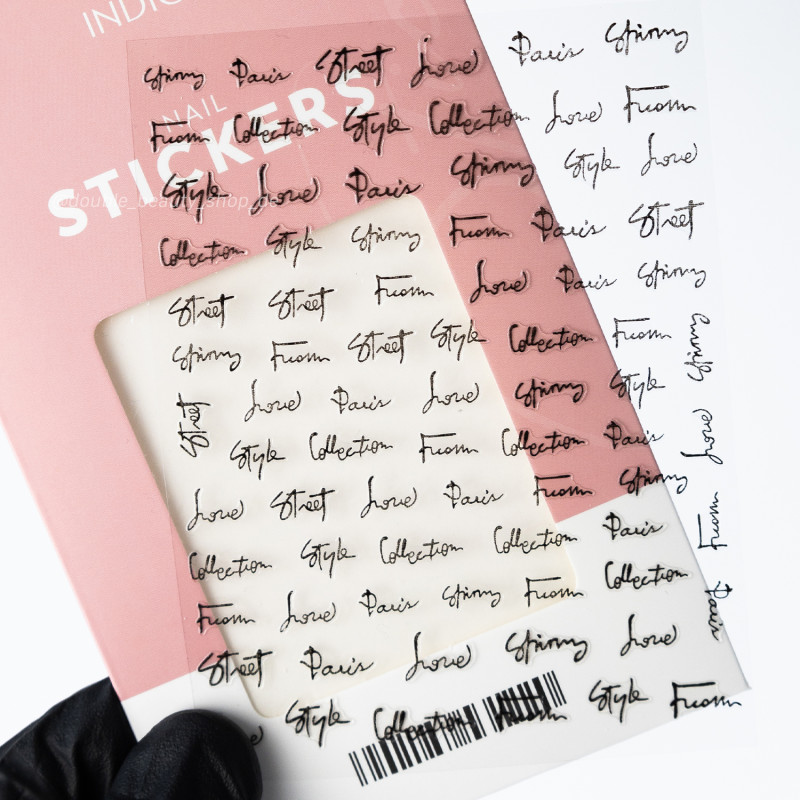 INDIG
NAIL
STICKERS
@double_beauty_shop_de
Spinny Paris Street Love Paris Spinny
From Collection Style Collection Love From
Style Love Paris Spinny Style Love
Collection Style Spinny From Paris Street
Street Street From Love Paris Spinny
Spinny From Street Style Collection From Spinny
Street Love Paris Love Spinny Style
Style Collection From Collection Paris Love
Love Street Love Paris From Spinny
Collection Style Collection Collection Paris From
From Love Paris Spinny From Collection
Street Paris Love Spinny Love Paris
Style Collection Style From